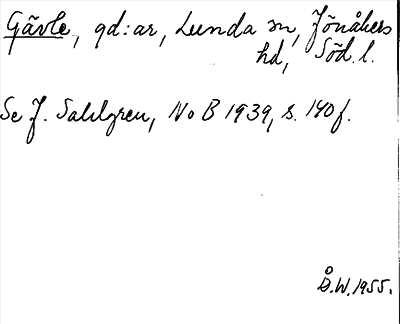 Gävle, gd:ar, Lunda sn, Jönåkers
hd, Söd. l.
Se J. Sahlgren, No B 1939, s. 140 f.
Å.W. 1955.